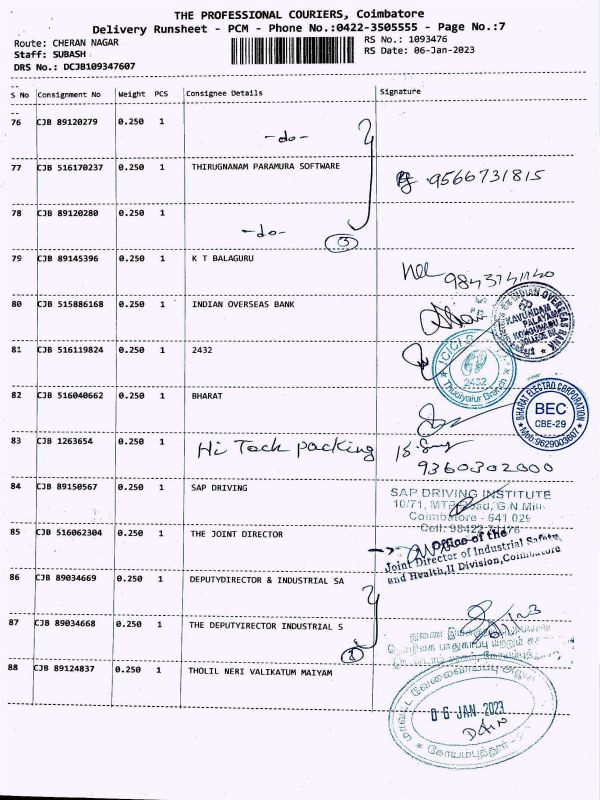 THE PROFESSIONAL COURIERS, Coimbatore
Delivery Runsheet - PCM - Phone No.:0422-3505555 - Page No.:7
Route: CHERAN NAGAR
RS No.: 1093476
Staff: SUBASH
RS Date: 06-Jan-2023
DRS No.: DCJB109347607
S No Consignment No Weight PCS Consignee Details Signature
76 CJB 89120279 0.250 1 -do-
77 CJB 516170237 0.250 1 THIRUGNANAM PARAMURA SOFTWARE 9566731815
78 CJB 89120280 0.250 1 -do-
79 CJB 89145396 0.250 1 K T BALAGURU
80 CJB 515886168 0.250 1 INDIAN OVERSEAS BANK
INDIAN OVERSEAS BANK
KAVUNDAM PALAYAM
81 CJB 516119824 0.250 1 2432
ICICI
2432
Thudiyalur Branch
82 CJB 516040662 0.250 1 BHARAT
BHARAT ELECTRO CORPORATION
BEC
CBE-29
Mob:9629003607
83 CJB 1263654 0.250 1 Hi Tack packing
9360302000
84 CJB 89150567 0.250 1 SAP DRIVING
SAP DRIVING INSTITUTE
10/71, MTP Road, G.N.Mills
Coimbatore - 641 029
Cell: 98422
85 CJB 516062304 0.250 1 THE JOINT DIRECTOR
Office of the
Joint Director of Industrial Safety
and Health,II Division,Coimbatore
86 CJB 89034669 0.250 1 DEPUTYDIRECTOR & INDUSTRIAL SA
87 CJB 89034668 0.250 1 THE DEPUTYIRECTOR INDUSTRIAL S
துணை
பாதுகாப்பு மற்றும்
88 CJB 89124837 0.250 1 THOLIL NERI VALIKATUM MAIYAM
மாவட்ட வேலைவாய்ப்பு
06 JAN 2023
கோயம்புத்தூர்